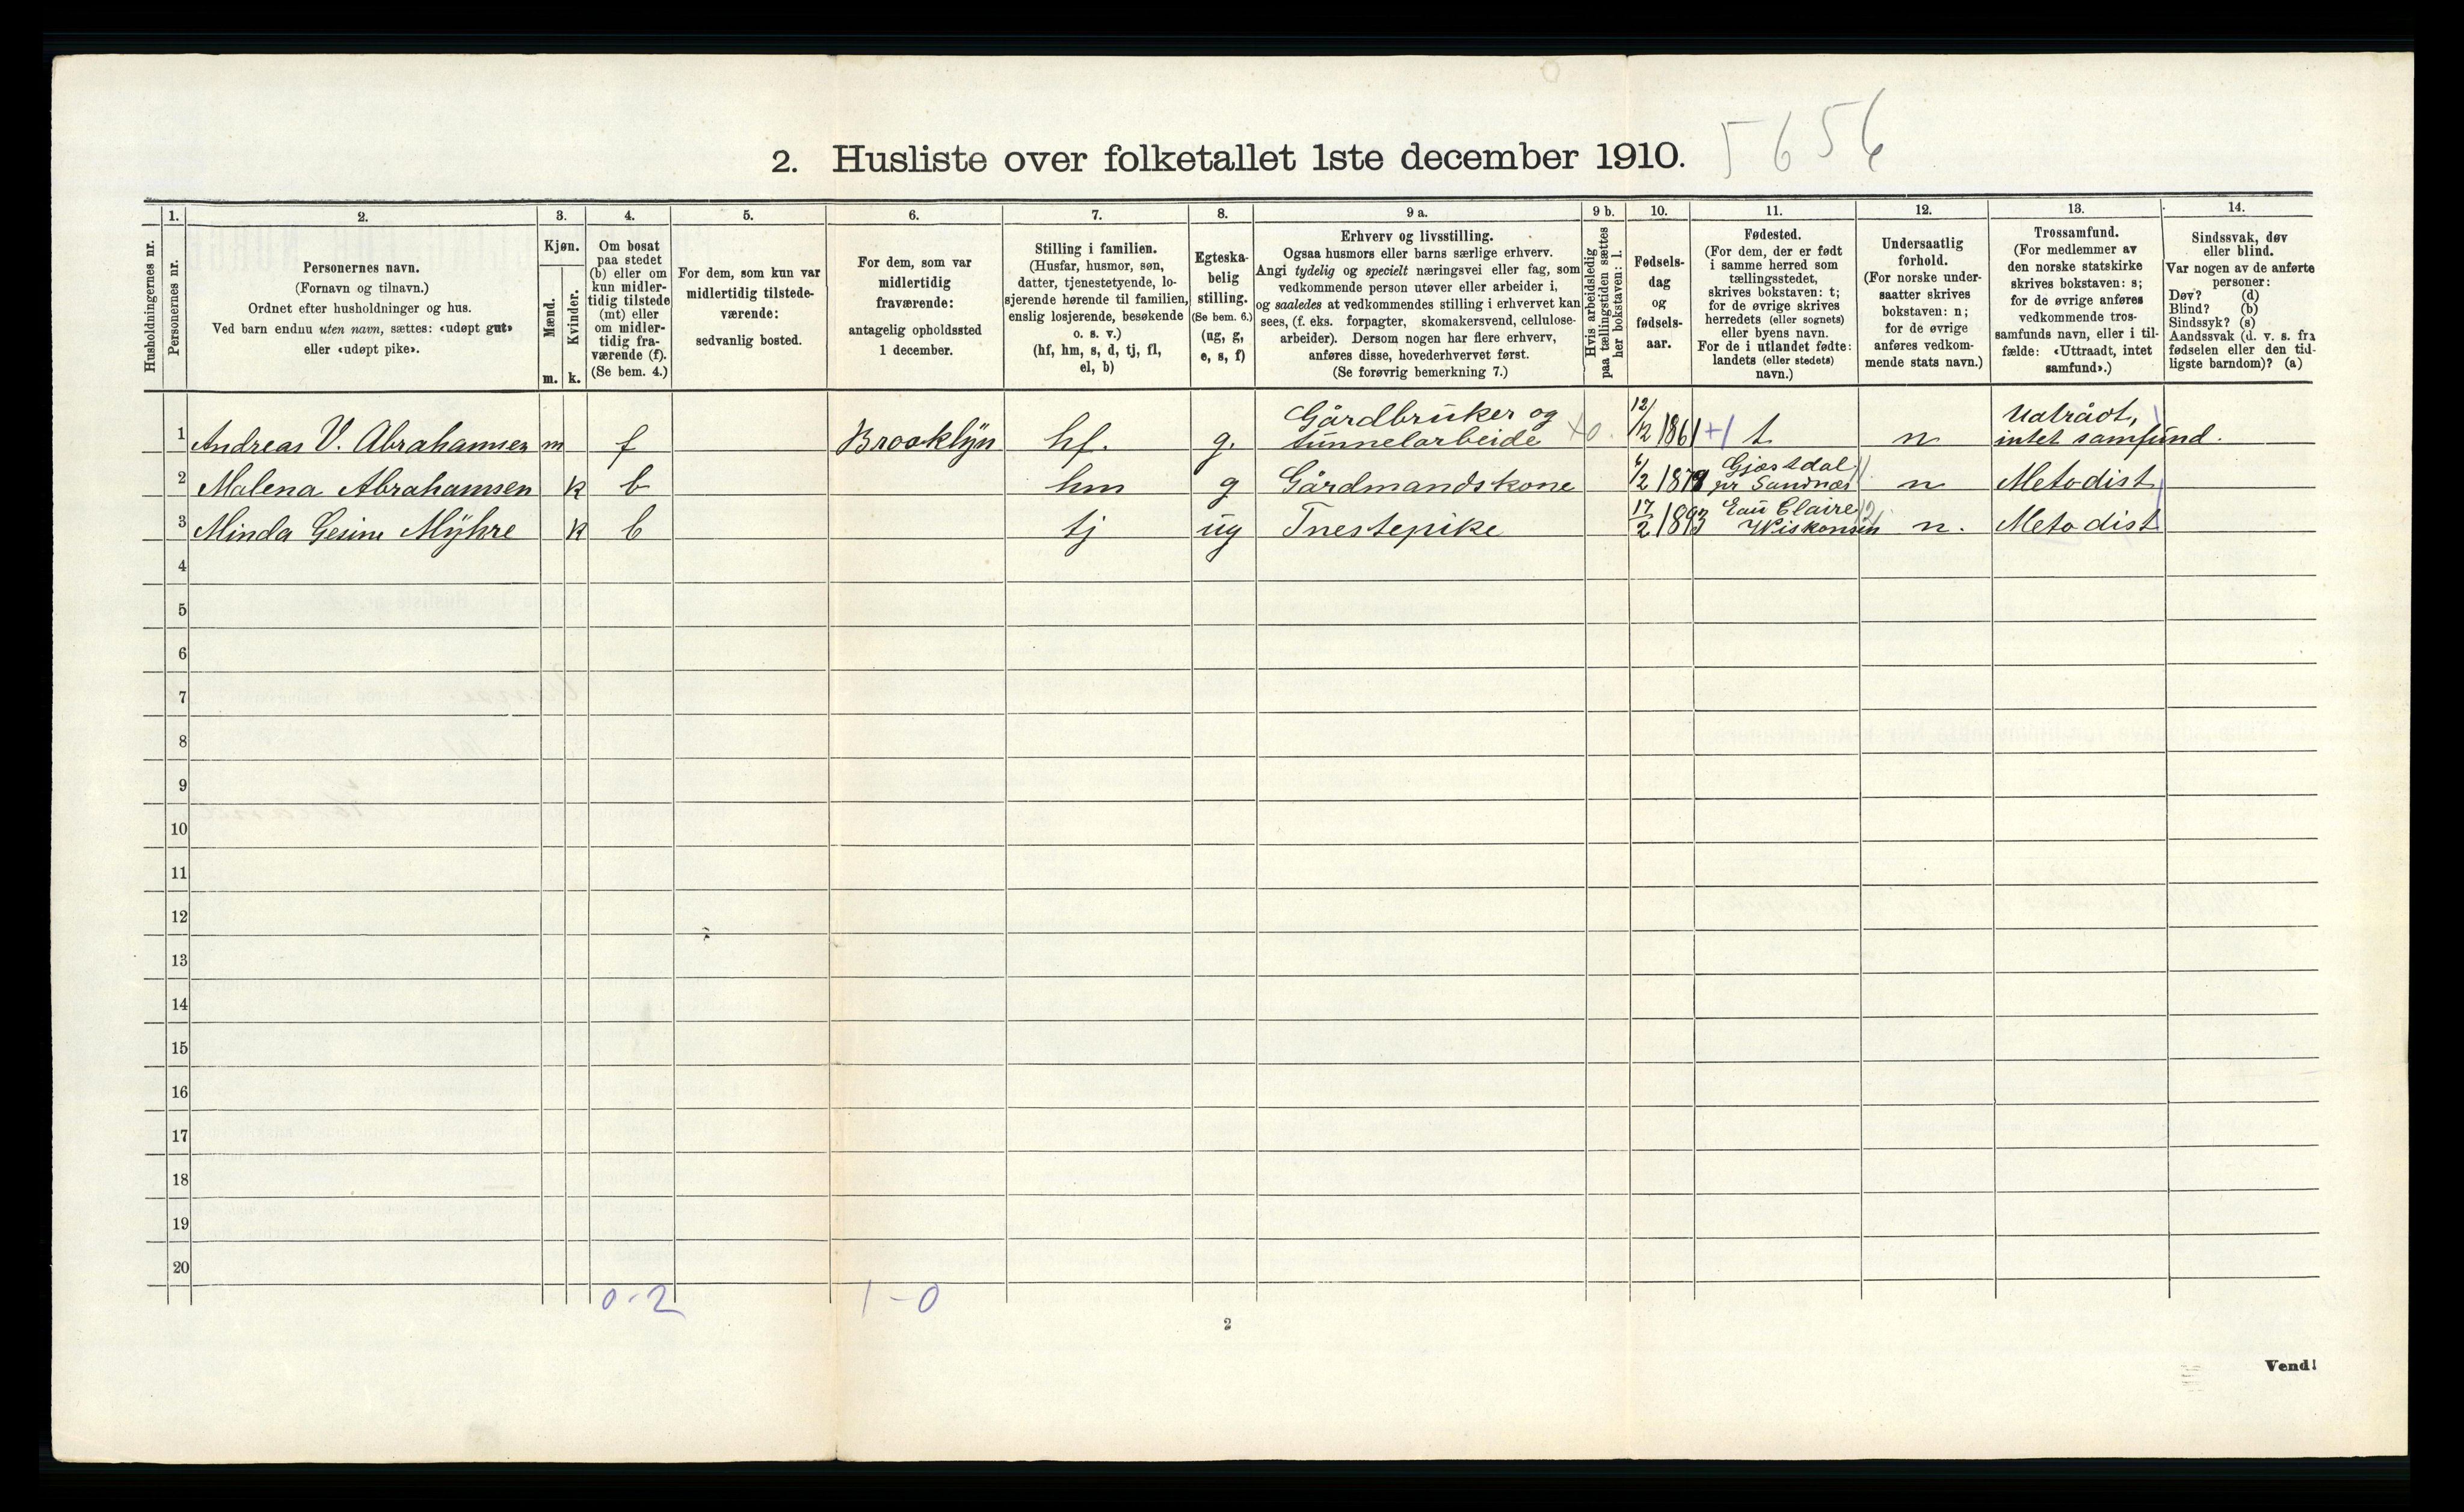 5656
2. Husliste over folketallet 1ste december 1910.
Husholdningernes nr.
1.
Personernes nr.
2.
Personernes navn.
(Fornavn og tilnavn.)
Ordnet efter husholdninger og hus.
Ved barn endnu uten navn, sættes: «udøpt gut»
eller «udøpt pike».
3.
Kjøn.
Mænd.
Kvinder.
m. k.
4.
Om bosat
paa stedet
(b) eller om
kun midler-
tidig tilstede
(mt) eller
om midler-
tidig fra-
værende (f).
(Se bem. 4.)
5.
For dem, som kun var
midlertidig tilstede-
værende:
sedvanlig bosted.
6.
For dem, som var
midlertidig
fraværende:
antagelig opholdssted
1 december.
7.
Stilling i familien.
(Husfar, husmor, søn,
datter, tjenestetyende, lo-
sjerende hørende til familien,
enslig losjerende, besøkende
o. s. v.)
(hf, hm, s, d, tj, fl,
el, b)
8.
Egteska-
belig
stilling.
(Se bem. 6.)
(ug, g,
e, s, f)
9 a.
Erhverv og livsstilling.
Ogsaa husmors eller barns særlige erhverv.
Angi tydelig og specielt næringsvei eller fag, som
vedkommende person utøver eller arbeider i,
og saaledes at vedkommendes stilling i erhvervet kan
sees, (f. eks. forpagter, skomakersvend, cellulose-
arbeider). Dersom nogen har flere erhverv,
anføres disse, hovederhvervet først.
(Se forøvrig bemerkning 7.)
9 b.
Hvis arbeidsledig
paa tællingstiden sættes
her bokstaven: l.
10.
Fødsels-
dag
og
fødsels-
aar.
11.
Fødested.
(For dem, der er født
i samme herred som
tællingsstedet,
skrives bokstaven: t;
for de øvrige skrives
herredets (eller sognets)
eller byens navn.
For de i utlandet fødte:
landets (eller stedets)
navn.)
12.
Undersaatlig
forhold.
(For norske under-
saatter skrives
bokstaven: n;
for de øvrige
anføres vedkom-
mende stats navn.)
13.
Trossamfund.
(For medlemmer av
den norske statskirke
skrives bokstaven: s;
for de øvrige anføres
vedkommende tros-
samfunds navn, eller i til-
fælde: «Uttraadt, intet
samfund».)
14.
Sindssvak, døv
eller blind.
Var nogen av de anførte
personer:
Døv? (d)
Blind? (b)
Sindssyk? (s)
Aandssvak (d. v. s. fra
fødselen eller den tid-
ligste barndom)? (a)
1 Andreas V. Abrahamsen m f Brooklyn hf. g. Gårdbruker og
tunnelarbeide 12/12 1861 t n Utrådt,
intet samfund.
2 Malena Abrahamsen k b hm g Gårdmandskone Gjæstdal
pr Sandnæs n Metodist
3 Minda Gesine Myhre k b tj ug Tnestepike 17/2 1893 Eau Claire
Wiskonsin n. Metodist
4
5
6
7
8
9
10
11
12
13
14
15
16
17
18
19
20
0-2 1-0
2
Vend!